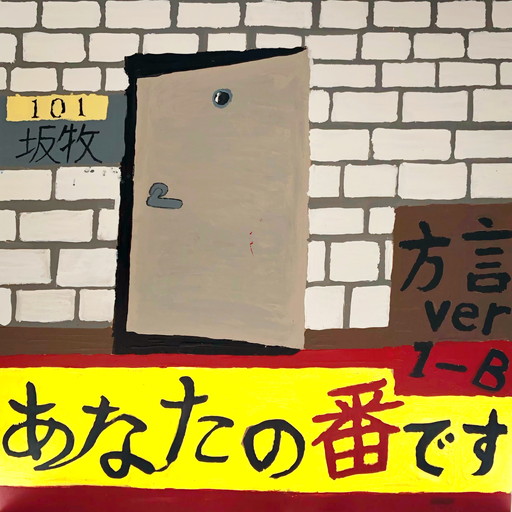 101
坂牧
方言
ver
1-B
あなたの番です